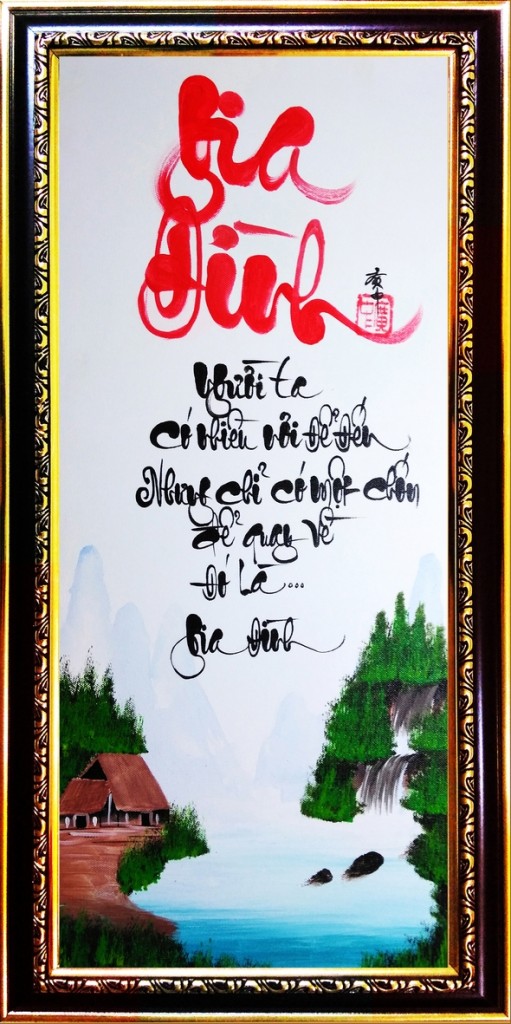 Gia
Đình
Người ta
có nhiều nơi để đến
Nhưng chỉ có một chốn
để quay về
Đó Là...
Gia Đình